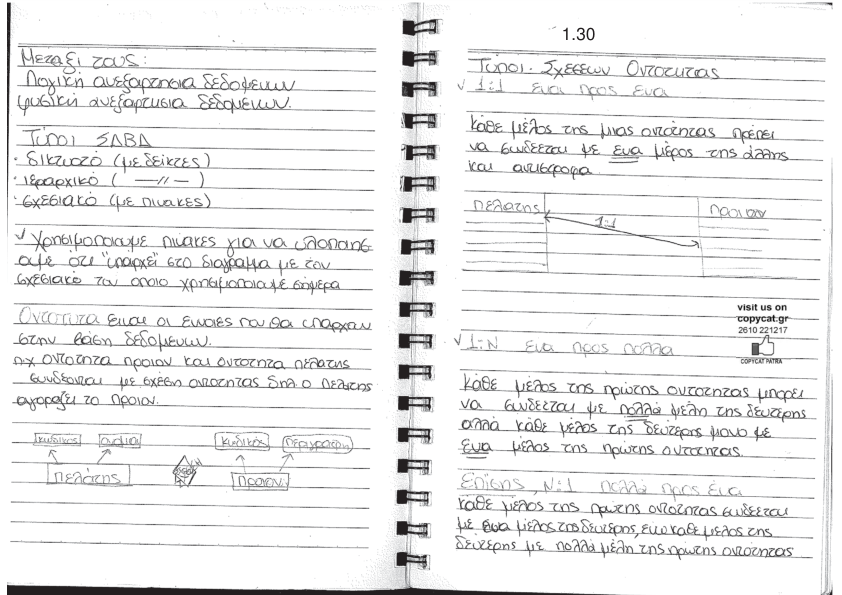 Μεταξι τους:
Λογική ανεξαρτησια δεδομενων
φυσική ανεξαρτησια δεδομενων.
Τύποι ΣΔΒΔ
· δικτυατό (με δείκτες)
· ιεραρχικό ( —//— )
· σχεσιακό (με πινακες)
✓ Χρησιμοποιουμε πινακες για να υλοποιησ
ουμε ότι "υπαρχει" στο διαγραμμα με τον
σχεσιακό τον οποιο χρησιμοποιουμε σήμερα
Οντοτητα ειναι οι εννοιες που θα υπαρχαν
στην βαση δεδομενων.
π.χ οντοτητα προιον και οντοτητα πελατης
συνδεονται με σχεση οντοτητας δηλ ο πελατης
αγοραζει το προιον.
κωδικος ονομα κωδικός περιγραφη
Πελάτης αγορα Προιον
1.30
Τύποι Σχεσεων Οντοτητας
✓ 1:1 ενα προς ενα
κάθε μέλος της μιας οντότητας πρέπει
να συνδεεται με ενα μέρος της άλλης
και αντιστροφα
πελατης 1:1 προιον
visit us on
copycat.gr
2610 221217
COPYCAT PATRA
✓ 1:Ν ενα προς πολλα
κάθε μέλος της πρώτης οντοτητας μπορει
να συνδεεται με πολλά μελη της δευτερης
αλλά κάθε μελος της δεύτερης μονο με
ενα μέλος της πρώτης οντοτητας.
Επίσης, Ν:1 πολλά προς ενα
κάθε μέλος της πρωτης οντοτητας συνδεεται
με ενα μελος της δευτερης, ενω καθε μελος της
δεύτερης με πολλά μέλη της πρωτης οντοτητας